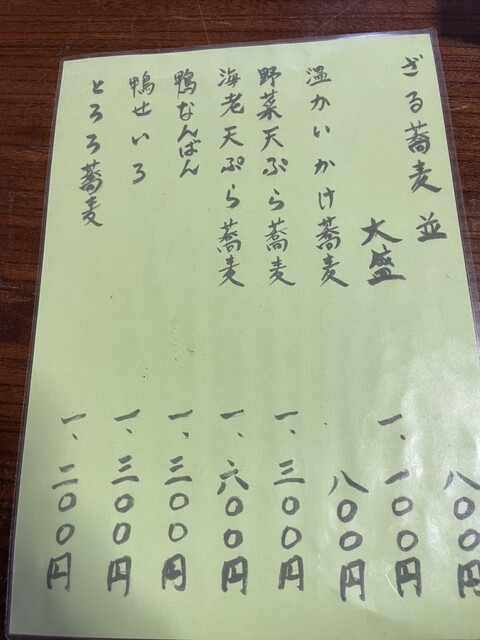 ざる蕎麦 並 八〇〇円
大盛 一、一〇〇円
温かいかけ蕎麦 八〇〇円
野菜天ぷら蕎麦 一、三〇〇円
海老天ぷら蕎麦 一、六〇〇円
鴨なんばん 一、三〇〇円
鴨せいろ 一、三〇〇円
とろろ蕎麦 一、二〇〇円